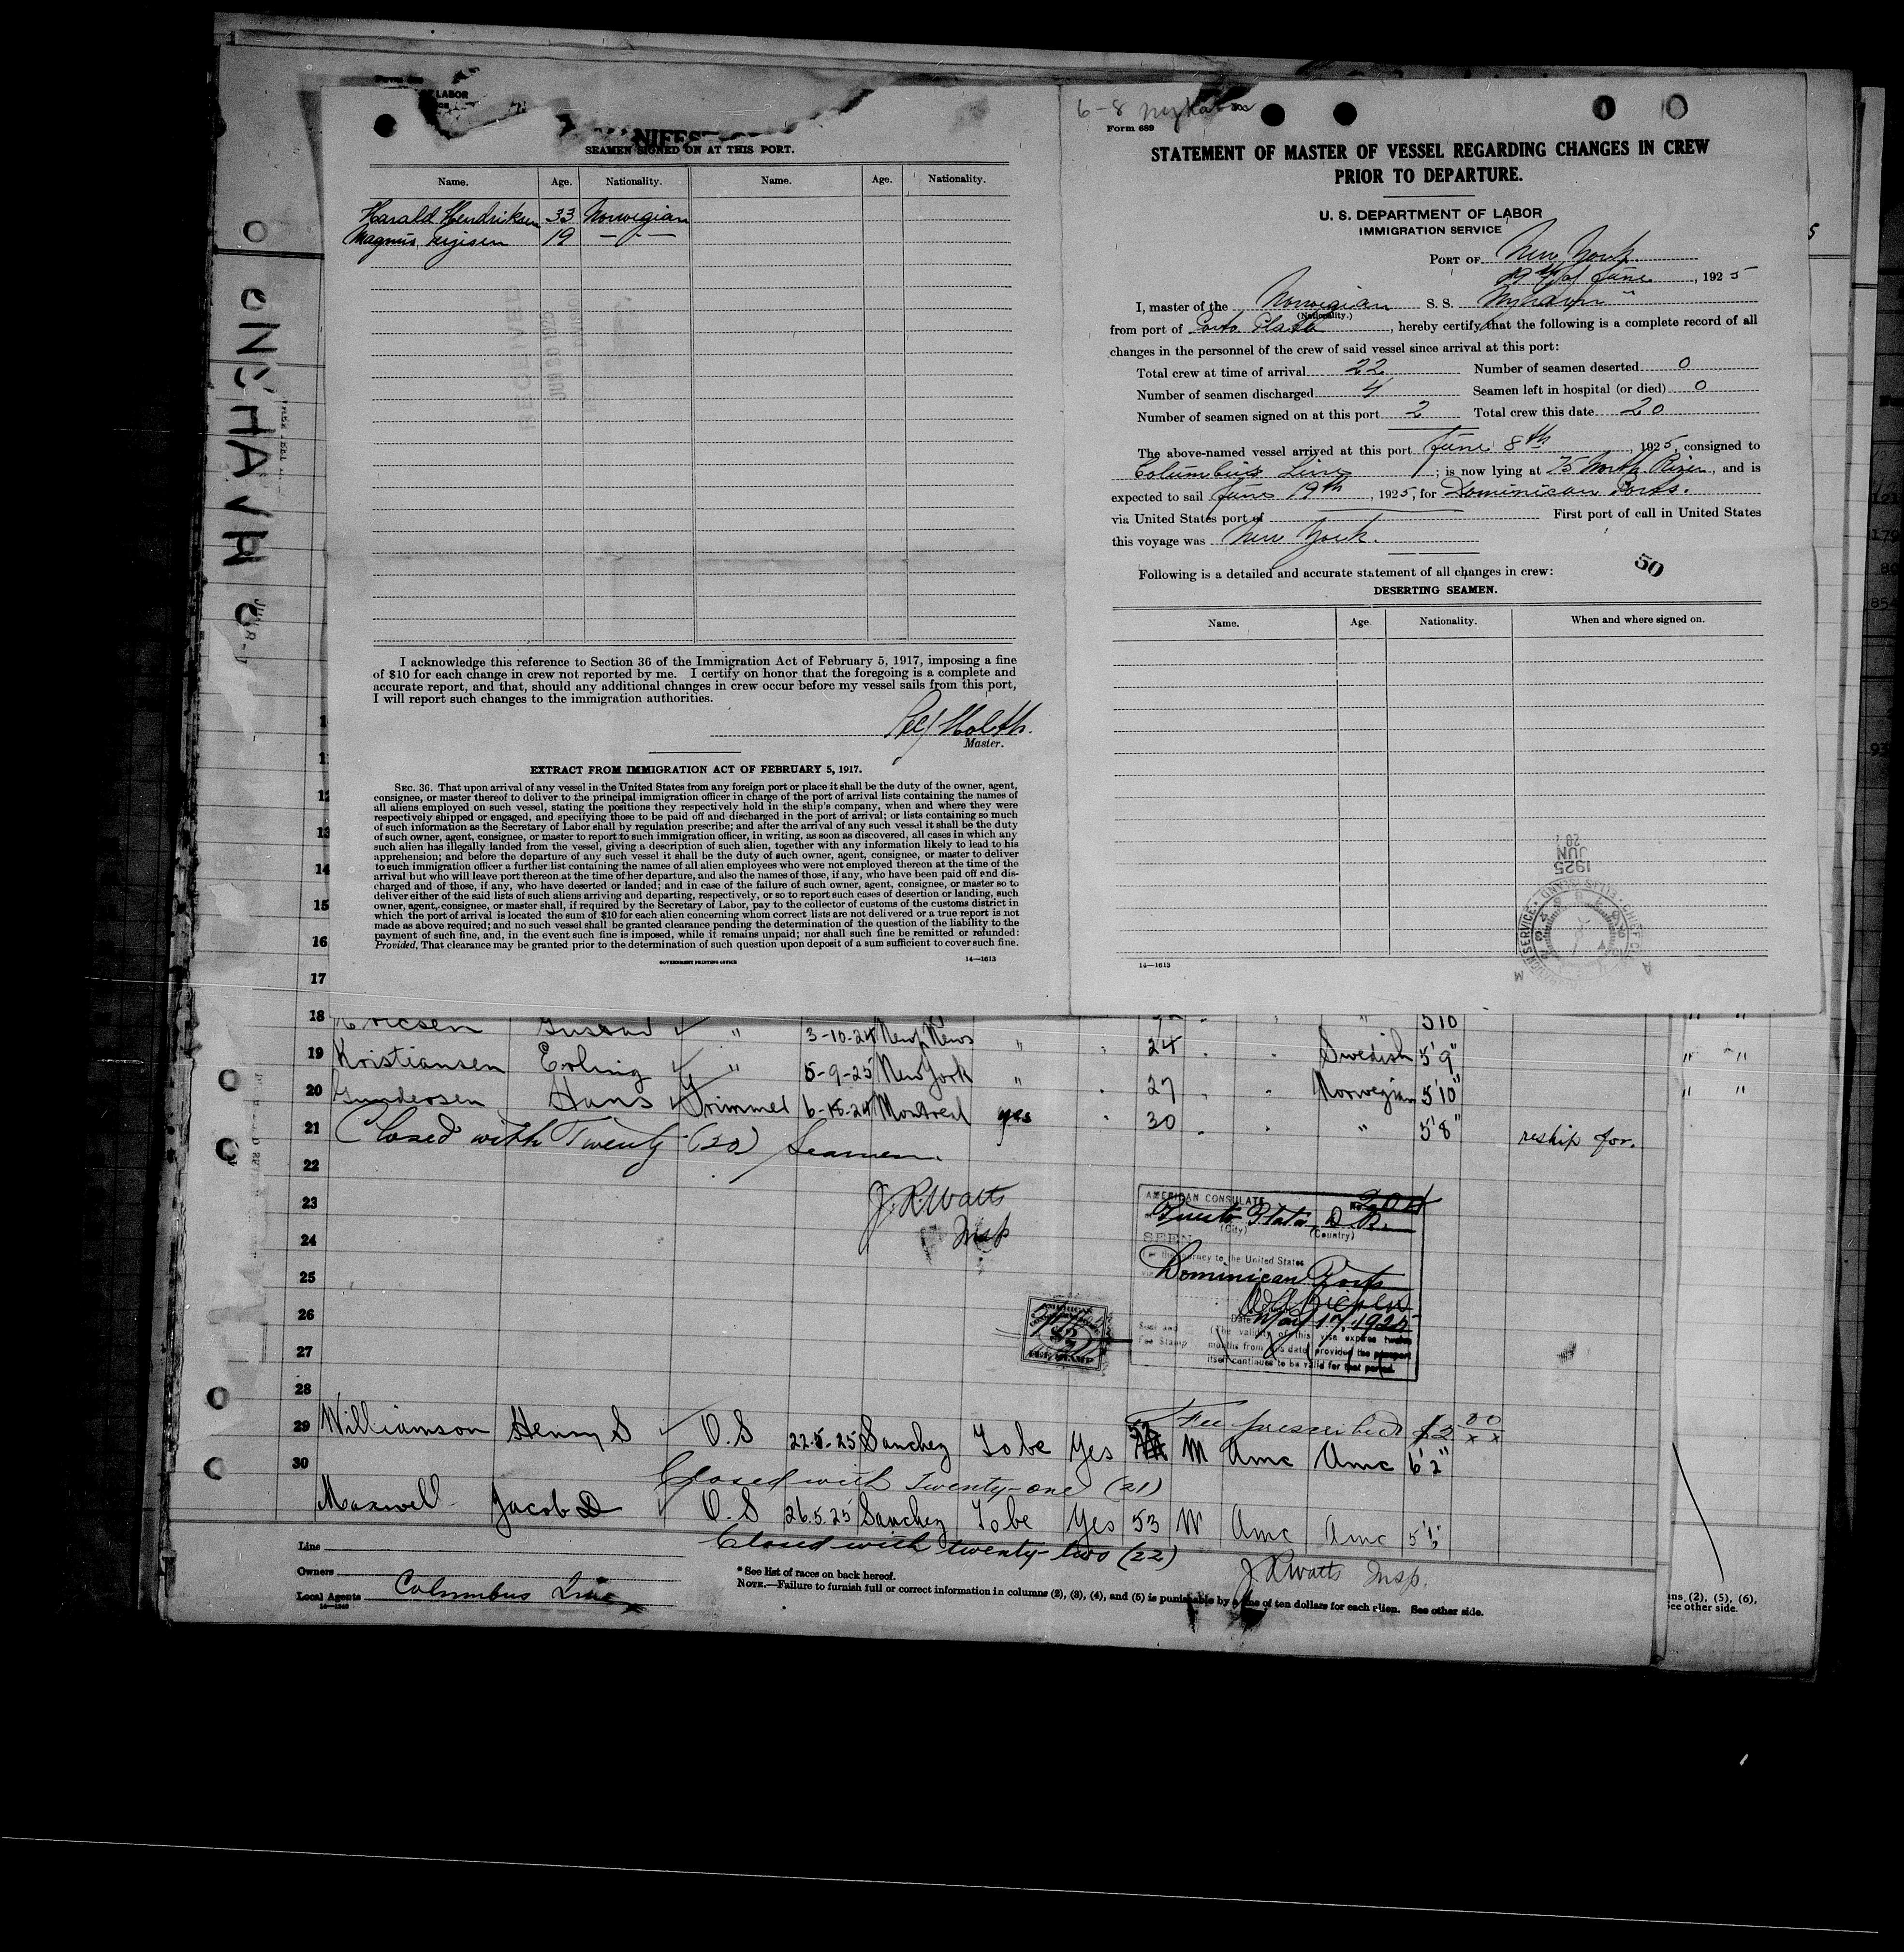 LABOR
SEAMEN SIGNED ON AT THIS PORT.
Name. Age. Nationality. Name. Age. Nationality.
Harald Hendriksen 33 Norwegian
Magnus 19 — " —
I acknowledge this reference to Section 36 of the Immigration Act of February 5, 1917, imposing a fine
of $10 for each change in crew not reported by me. I certify on honor that the foregoing is a complete and
accurate report, and that, should any additional changes in crew occur before my vessel sails from this port,
I will report such changes to the immigration authorities.
Master.
EXTRACT FROM IMMIGRATION ACT OF FEBRUARY 5, 1917.
SEC. 36. That upon arrival of any vessel in the United States from any foreign port or place it shall be the duty of the owner, agent,
consignee, or master thereof to deliver to the principal immigration officer in charge of the port of arrival lists containing the names of
all aliens employed on such vessel, stating the positions they respectively hold in the ship's company, when and where they were
respectively shipped or engaged, and specifying those to be paid off and discharged in the port of arrival; or lists containing so much
of such information as the Secretary of Labor shall by regulation prescribe; and after the arrival of any such vessel it shall be the duty
of such owner, agent, consignee, or master to report to such immigration officer, in writing, as soon as discovered, all cases in which any
such alien has illegally landed from the vessel, giving a description of such alien, together with any information likely to lead to his
apprehension; and before the departure of any such vessel it shall be the duty of such owner, agent, consignee, or master to deliver
to such immigration officer a further list containing the names of all alien employees who were not employed thereon at the time of the
arrival but who will leave port thereon at the time of her departure, and also the names of those, if any, who have been paid off and dis-
charged and of those, if any, who have deserted or landed; and in case of the failure of such owner, agent, consignee, or master so to
deliver either of the said lists of such aliens arriving and departing, respectively, or so to report such cases of desertion or landing, such
owner, agent, consignee, or master shall, if required by the Secretary of Labor, pay to the collector of customs of the customs district in
which the port of arrival is located the sum of $10 for each alien concerning whom correct lists are not delivered or a true report is not
made as above required; and no such vessel shall be granted clearance pending the determination of the question of the liability to the
payment of such fine, and, in the event such fine is imposed, while it remains unpaid; nor shall such fine be remitted or refunded:
Provided, That clearance may be granted prior to the determination of such question upon deposit of a sum sufficient to cover such fine.
GOVERNMENT PRINTING OFFICE 14—1613
6-8
Form 689
STATEMENT OF MASTER OF VESSEL REGARDING CHANGES IN CREW
PRIOR TO DEPARTURE.
U. S. DEPARTMENT OF LABOR
IMMIGRATION SERVICE
PORT OF New York
19th of June, 1925
I, master of the Norwegian S. S.
(Nationality.)
from port of Porto Plata, hereby certify that the following is a complete record of all
changes in the personnel of the crew of said vessel since arrival at this port:
Total crew at time of arrival 22 Number of seamen deserted 0
Number of seamen discharged 4 Seamen left in hospital (or died) 0
Number of seamen signed on at this port 2 Total crew this date 20
The above-named vessel arrived at this port June 8th, 1925, consigned to
Columbus Line; is now lying at 75 North River, and is
expected to sail June 19th, 1925, for Dominican Ports.
via United States port of First port of call in United States
this voyage was New York.
50
Following is a detailed and accurate statement of all changes in crew:
DESERTING SEAMEN.
Name. Age. Nationality. When and where signed on.
1925
JUN
20
14—1613
12
13
14
15
16
17
18 Ericsen Gustav " 3-10-24 Newp News " 510
19 Kristiansen Erling " 5-9-25 New York " 24 Swedish 5'9"
20 Gundersen Hans Trimmer Montreal yes 27 Norwegian 5'10"
21 Closed with Twenty (20) Seamen. 30 " 5'8" reship for.
22
23 J. R Watts
24 Insp
25
26
27
28
AMERICAN CONSULATE
Puerto Plata, D. R.
(City) (Country)
SEEN
For the journey to the United States
Dominican Ports
Date May 17, 1925
Seal and Fee Stamp
(The validity of this visa expires twelve
months from this date provided the passport
itself continues to be valid for that period.
$2
FEE STAMP
Fee prescribed $2 00
29 Williamson Henry S O.S 22-5-25 Sanchez To be Yes 52 M Amc Amc 6'2"
30 Closed with twenty-one (21)
Maxwell Jacob D O.S 26.5.25 Sanchez To be Yes 53 M Amc Amc 5'
Closed with twenty-two (22)
J R Watts Insp.
Line
Owners
Local Agents Columbus Line
* See list of races on back hereof.
NOTE.—Failure to furnish full or correct information in columns (2), (3), (4), and (5) is punishable by a fine of ten dollars for each alien. See other side.
ins (2), (5), (6),
See other side.